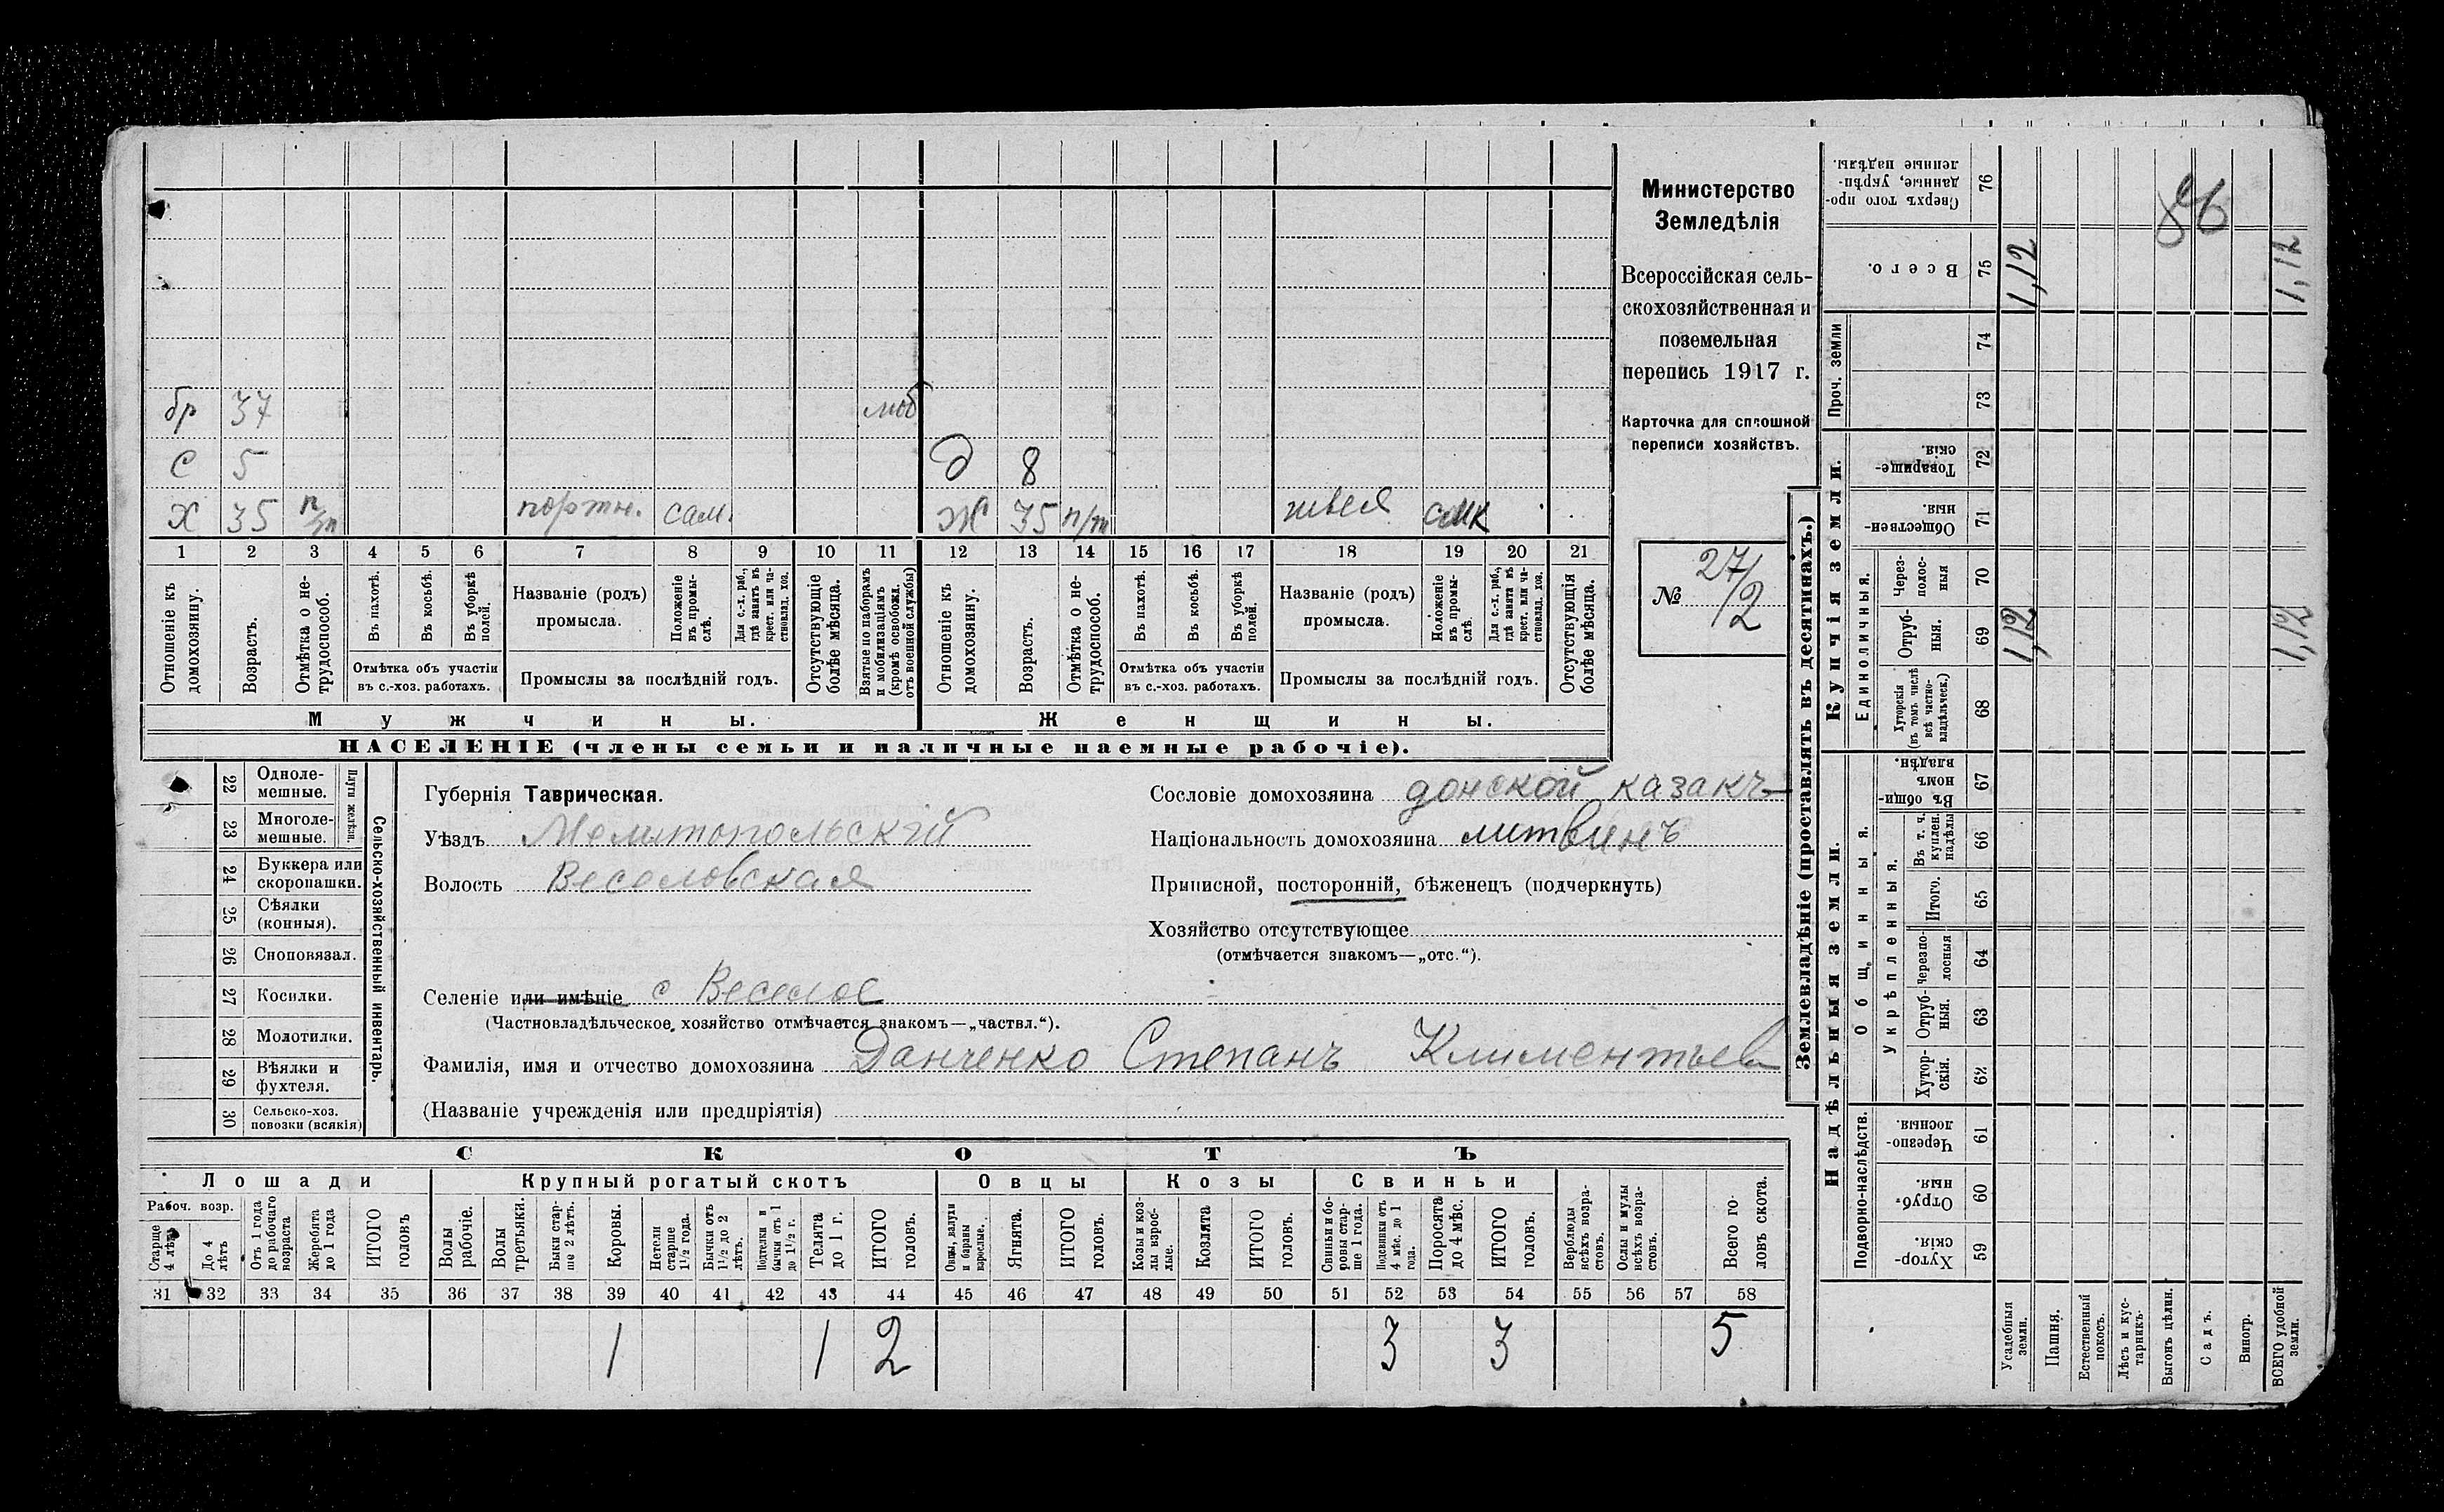 бр 37 моб
С 5 д 8
Х 35 п/т портн. сам. Ж 35 п/т швея
1 2 3 4 5 6 7 8 9 10 11 12 13 14 15 16 17 18 19 20 21
Отношеніе къ домохозяину.
Возрастъ.
Отмѣтка о нетрудоспособ.
Въ пахотѣ.
Въ косьбѣ.
Въ уборкѣ полей.
Отмѣтка объ участіи
въ с.-хоз. работахъ.
Названіе (родъ)
промысла.
Положеніе въ промыслѣ.
Для с.-х. раб., гдѣ занятъ въ крест. или частновлад. хоз.
Промыслы за послѣдній годъ.
Отсутствующіе болѣе мѣсяца.
Взятые по наборамъ и мобилизаціямъ (кромѣ освобожд. отъ военной службы)
Отношеніе къ домохозяину.
Возрастъ.
Отмѣтка о нетрудоспособ.
Въ пахотѣ.
Въ косьбѣ.
Въ уборкѣ полей.
Отмѣтка объ участіи
въ с.-хоз. работахъ.
Названіе (родъ)
промысла.
Положеніе въ промыслѣ.
Для с.-х. раб., гдѣ занята въ крест. или частновлад. хоз.
Промыслы за послѣдній годъ.
Отсутствующія болѣе мѣсяца.
Мужчины. Женщины.
НАСЕЛЕНІЕ (члены семьи и наличные наемные рабочіе).
Министерство
Земледѣлія
Всероссійская сель-
скохозяйственная и
поземельная
перепись 1917 г.
Карточка для сплошной
переписи хозяйствъ.
№ 27/2
22 Одноле-
мешные.
23 Многоле-
мешные.
Плуги желѣзн.
24 Буккера или
скоропашки.
25 Сѣялки
(конныя).
26 Сноповязал.
27 Косилки.
28 Молотилки.
29 Вѣялки и
фухтеля.
30 Сельско-хоз.
повозки (всякія)
Сельско-хозяйственный инвентарь.
Губернія Таврическая.
Уѣздъ Мелитопольскій
Волость Веселовская
Селеніе или имѣніе с Веселое
(Частновладѣльческое хозяйство отмѣчается знакомъ—„частвл.“).
Фамилія, имя и отчество домохозяина Данченко Степанъ Климентьев
(Названіе учрежденія или предпріятія)
Сословіе домохозяина донской казакъ
Національность домохозяина литвинъ
Приписной, посторонній, бѣженецъ (подчеркнуть)
Хозяйство отсутствующее
(отмѣчается знакомъ—„отс.“).
СКОТЪ
Лошади Крупный рогатый скотъ Овцы Козы Свиньи
Рабоч. возр.
Старше 4 лѣтъ
До 4 лѣтъ
Отъ 1 года до рабочаго возраста
Жеребята до 1 года
ИТОГО головъ
Волы рабочіе.
Волы третьяки.
Быки старше 2 лѣтъ.
Коровы.
Нетели старше 1½ года.
Бычки отъ 1½ до 2 лѣтъ.
Подтелки и бычки отъ 1 до 1½ г.
Телята до 1 г.
ИТОГО головъ.
Овцы, валухи и бараны взрослые.
Ягнята.
ИТОГО головъ.
Козы и козлы взрослые.
Козлята
ИТОГО головъ.
Свиньи и боровы старше 1 года.
Подсвинки отъ 4 мѣс. до 1 года.
Поросята до 4 мѣс.
ИТОГО головъ.
Верблюды всѣхъ возрастовъ.
Ослы и мулы всѣхъ возрастовъ.
Всего головъ скота.
31 32 33 34 35 36 37 38 39 40 41 42 43 44 45 46 47 48 49 50 51 52 53 54 55 56 57 58
1 1 2 3 3 5
Землевладѣніе (проставлять въ десятинахъ.)
Надѣльныя земли. Купчія земли. Проч. земли
Подворно-наслѣдств.
Общинныя.
Укрѣпленныя.
Единоличныя.
Сверхъ того проданные, укрѣпленные надѣлы. 76
Всего. 75 1,12 1,12
74
73
Товарищескія. 72
Общественныя. 71
Через-полос-ныя 70
Отруб-ныя. 69 1,12 1,12
Хуторскія (въ томъ числѣ всѣ частновладѣльческ.) 68
Въ общиномъ владѣн. 67
Въ т. ч. куплен. надѣлы 66
Итого. 65
Черезпо-лосныя 64
Отруб-ныя. 63
Хутор-скія. 62
Черезпо-лосныя. 61
Отруб-ныя. 60
Хутор-скія. 59
Усадебныя земли.
Пашня.
Естественный покосъ.
Лѣсъ и кустарникъ.
Выгонъ цѣлин.
Садъ.
Виногр.
ВСЕГО удобной земли.